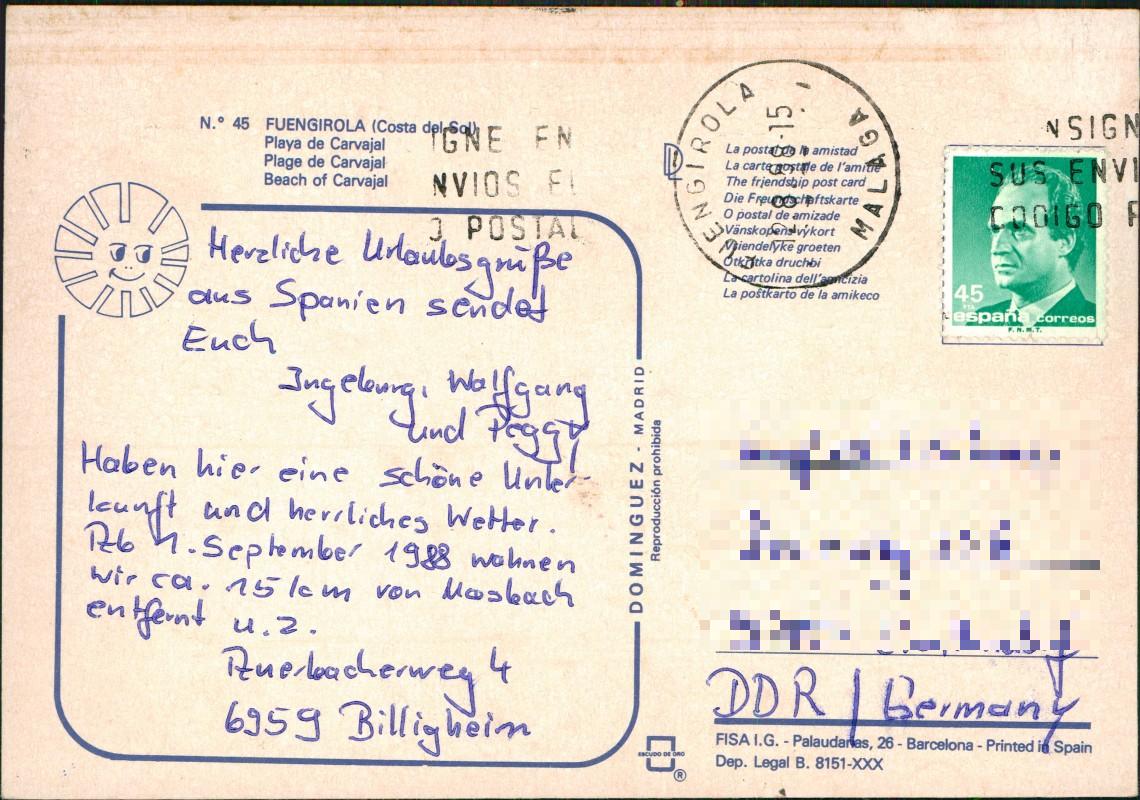 N.º 45 FUENGIROLA (Costa del Sol)
Playa de Carvajal
Plage de Carvajal
Beach of Carvajal
IGNE EN
NVIOS EL
O POSTAL
Herzliche Urlaubsgrüße
aus Spanien sendet
Euch
Ingeburg, Wolfgang
und Peggy
Haben hier eine schöne Unter-
kunft und herrliches Wetter.
Ab 1. September 1988 wohnen
wir ca. 15 km von Mosbach
entfernt u. z.
Auerbacherweg 4
6959 Billigheim
DOMINGUEZ - MADRID
Reproducción prohibida
FUENGIROLA
MALAGA
La postal de la amistad
La carte postale de l'amitié
The friendship post card
Die Freundschaftskarte
O postal de amizade
Vänskopens vykort
Vriendelyke groeten
Otkritka druchbi
La cartolina dell'amicizia
La poŝtkarto de la amikeco
NSIGN
SUS ENVI
CODIGO P
45
PTA
españa correos
F.N.M.T.
DDR / Germany
ESCUDO DE ORO
®
FISA I.G. - Palaudarias, 26 - Barcelona - Printed in Spain
Dep. Legal B. 8151-XXX